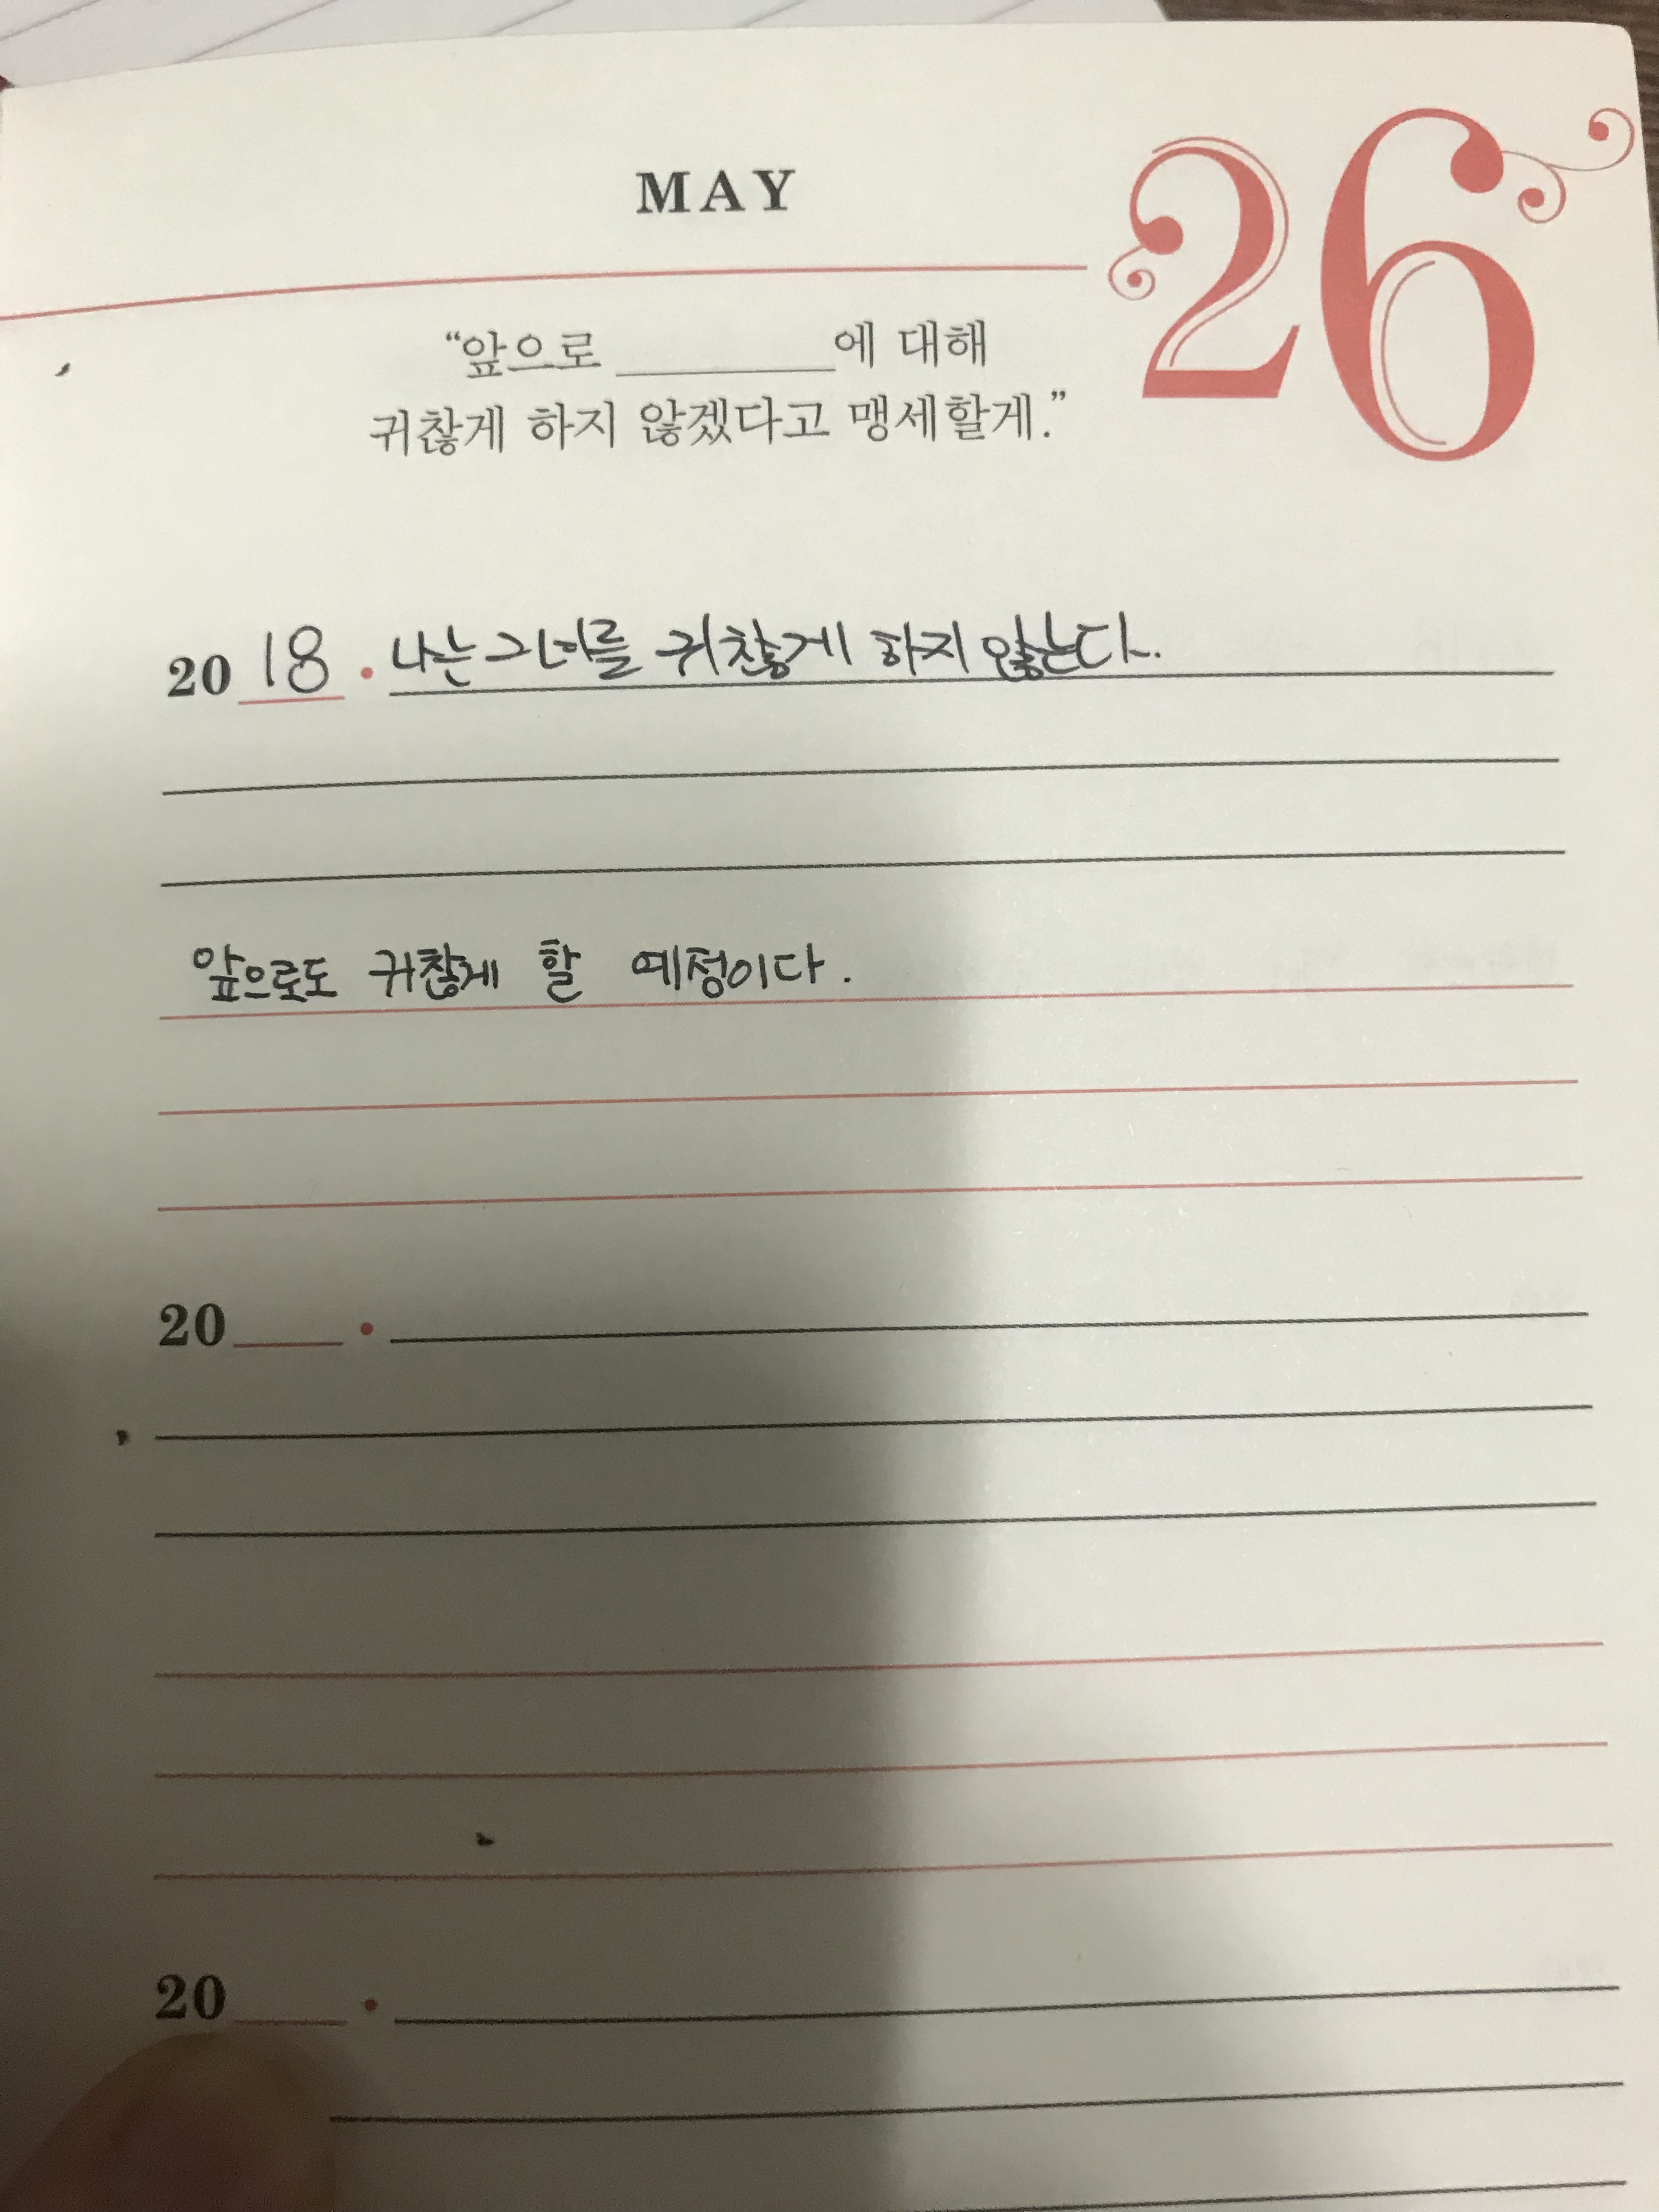 MAY
26
“앞으로 ________에 대해
귀찮게 하지 않겠다고 맹세할게.”
2018 • 나는 그녀를 귀찮게 하지 않는다.
앞으로도 귀찮게 할 예정이다.
20___ •
20___ •